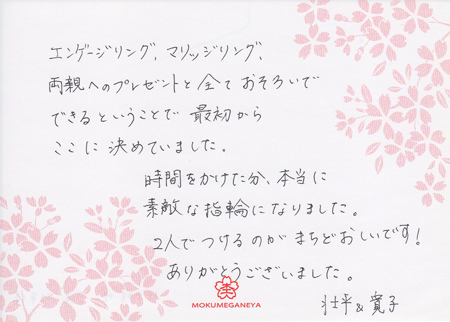 エンゲージリング、マリッジリング、
両親へのプレゼントと全ておそろいで
できるということで 最初から
ここに決めていました。
時間をかけた分、本当に
素敵な指輪になりました。
2人でつけるのが まちどおしいです!
ありがとうございました。
壮平&寛子
MOKUMEGANEYA